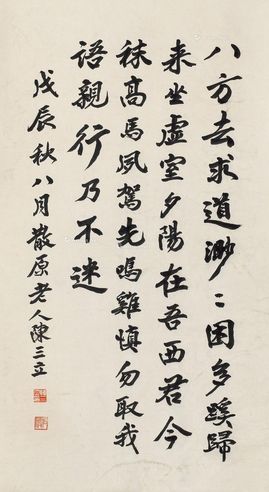 八方去求道渺〻困多蹊歸
来坐虛室夕陽在吾西君今
秣高馬夙駕先鳴雞慎勿取我
語親行乃不迷
戊辰秋八月散原老人陳三立